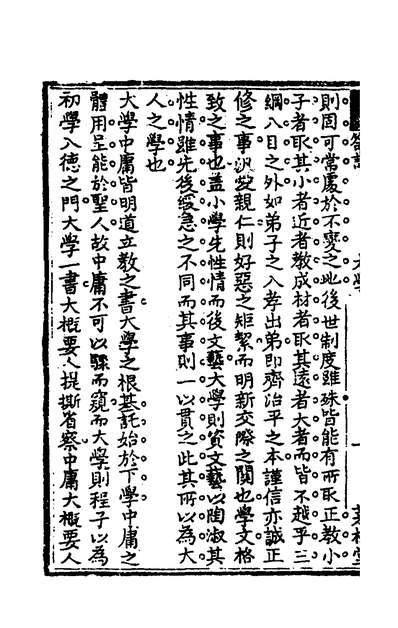 則固可常處於不變之地後世制度雖殊皆能有所取正教小
子者取其小者近者教成材者取其遠者大者而皆不越乎三
綱八目之外如弟子之入孝出弟即齊治平之本謹信亦誠正
修之事汎愛親仁則好惡之矩絜而明新交際之関也學文格
致之事也蓋小學先性情而後文藝大學則資文藝以陶淑其
性情雖先後緩急之不同而其事則一以貫之此其所以為大
人之學也
大學中庸皆明道立教之書大學之根基託始於下學中庸之
體用呈能於聖人故中庸不可以驟而窺而大學則程子以為
初學入德之門大學一書大概要人提撕省察中庸大概要人